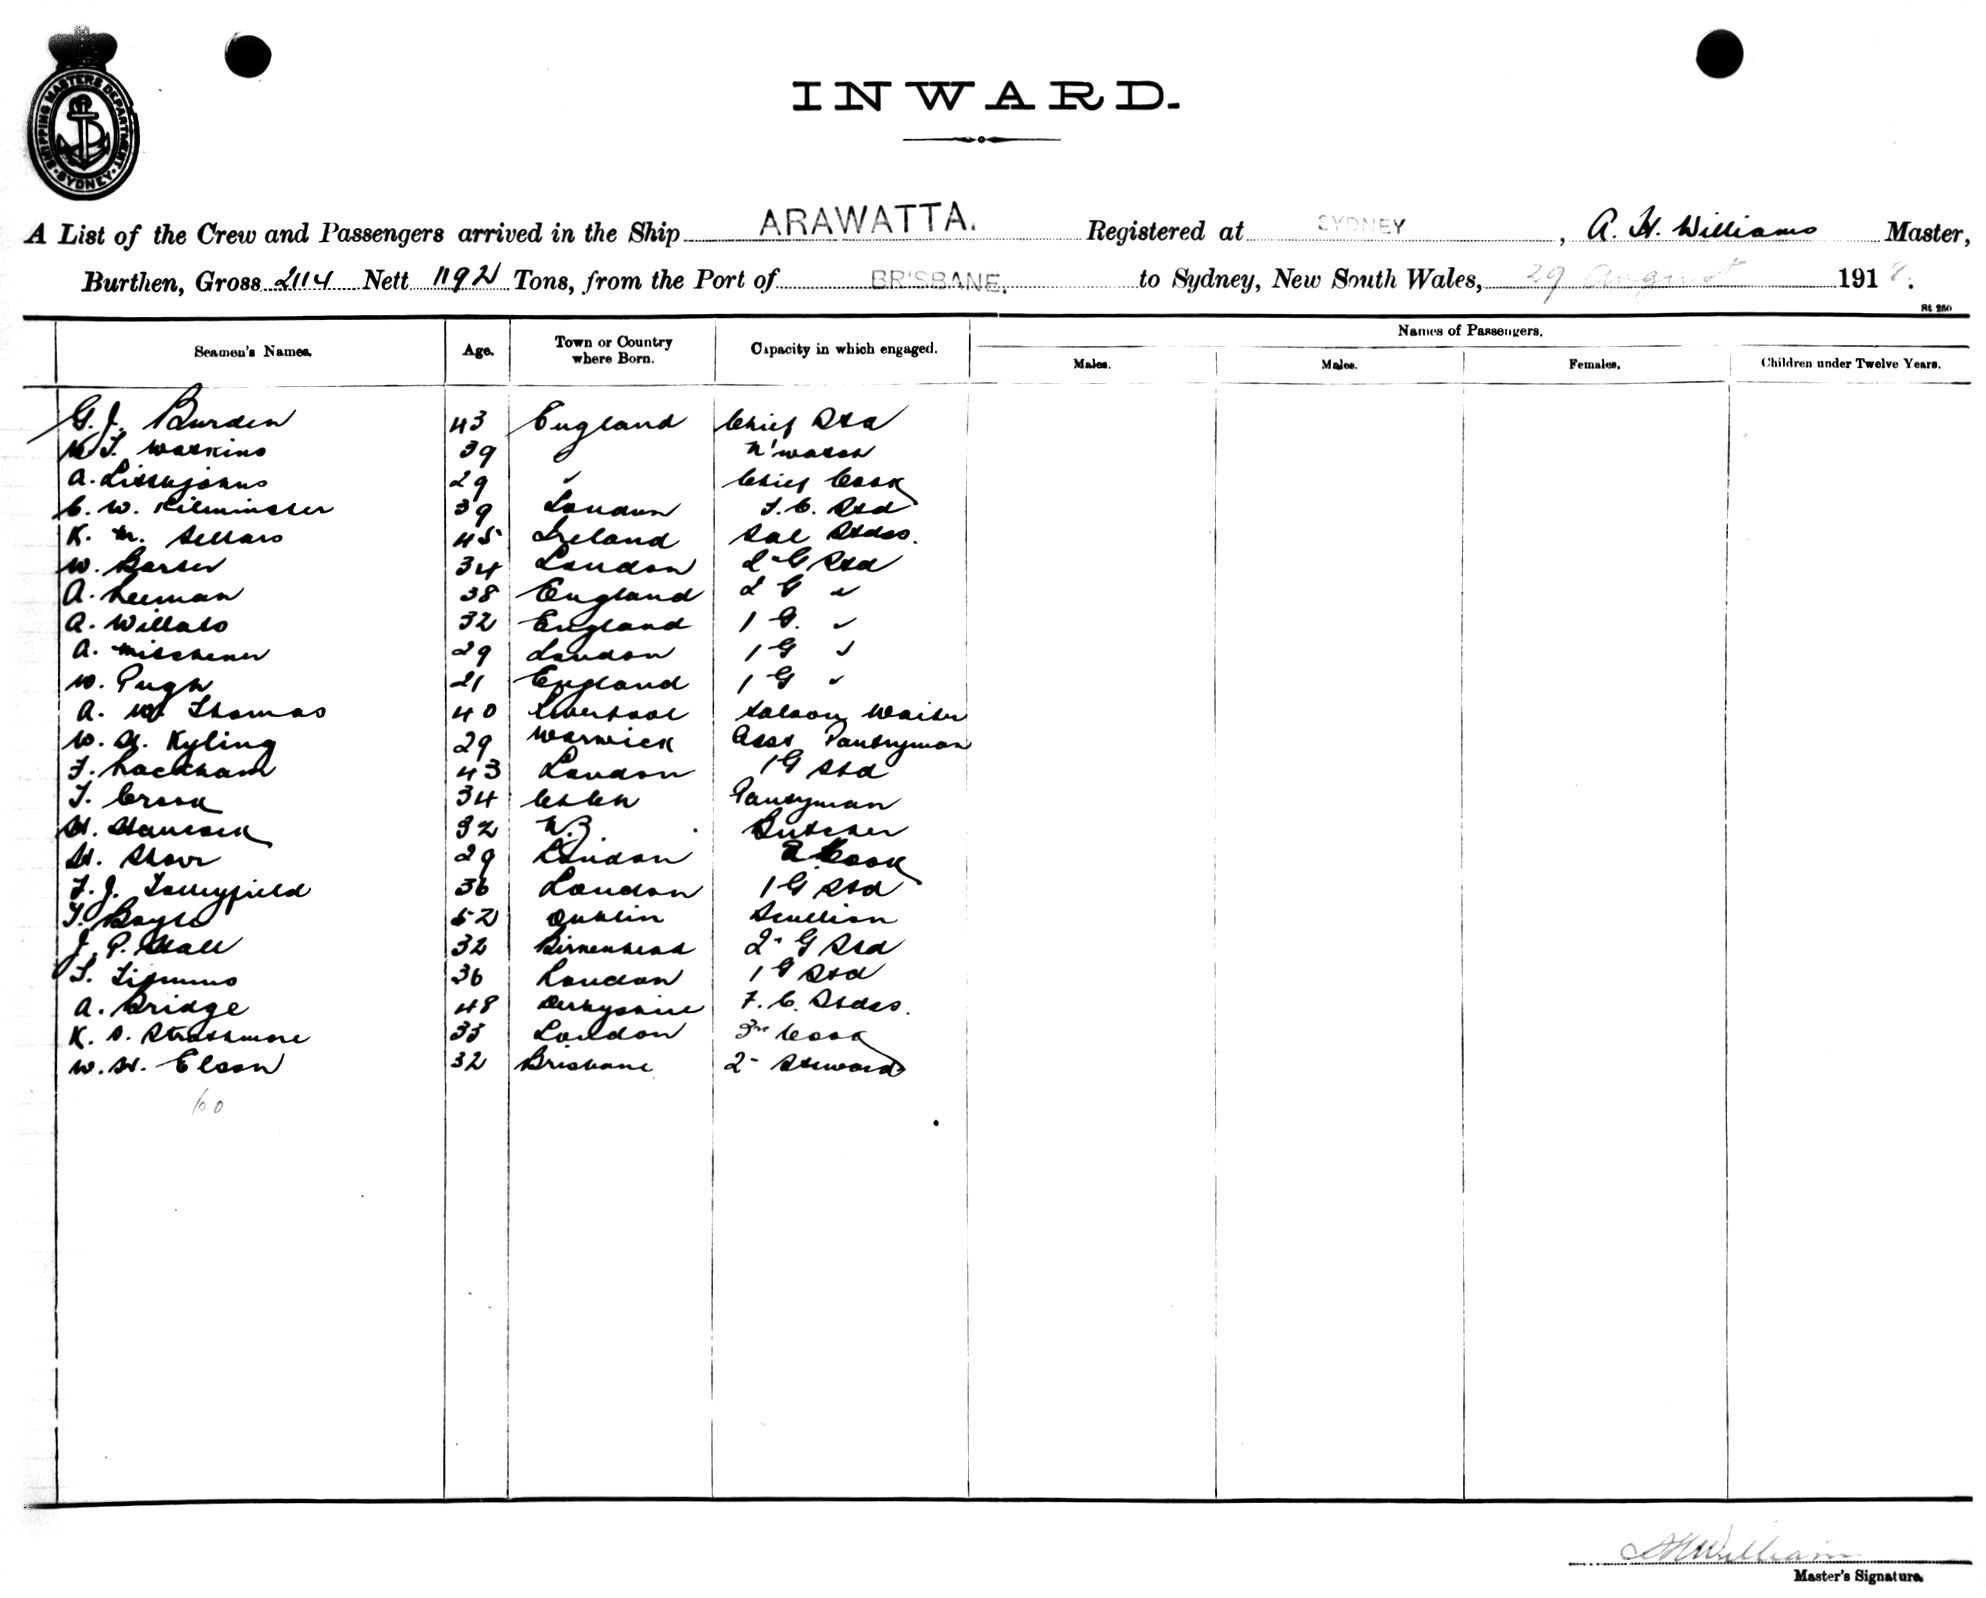 SHIPPING MASTERS DEPARTMENT
SYDNEY
INWARD.
A List of the Crew and Passengers arrived in the Ship ARAWATTA. Registered at SYDNEY, A. H. Williams Master,
Burthen, Gross 2114 Nett 1192 Tons, from the Port of BRISBANE. to Sydney, New South Wales, 29 August 1918.
St 250
Seamen's Names. Age. Town or Country where Born. Capacity in which engaged. Names of Passengers.
Males. Males. Females. Children under Twelve Years.
G. J. Burden 43 England Chief Std
T. Watkins 39 " N'watch
A. 29 " Chief Cook
C. W. Kilminster 39 London F. C. Std
K. M. Sellars 45 Ireland Sal Stdss.
W. Barber 34 London 2- G Std
A. Leeman 38 England 2 G "
A. Willats 32 England 1 G. "
A. Mitchener 29 London 1 G "
W. Pugh 21 England 1 G "
A. W. Thomas 40 Liverpool Saloon Waiter
W. H. Kyling 29 Warwick Asst Pantryman
F. Rackham 43 London 1 G Std
T. Crook 34 Pantryman
H. Hancock 32 N.Z. Butcher
H. Storr 29 London Cook
F. J. 36 London 1 G Std
T. Boyle 52 Dublin Scullion
J. P. Hall 32 Birkenhead 2- G Std
T. Timmins 36 London 1 G Std
A. Bridge 48 Derbyshire F. C. Stdss.
K. S. Strathmore 33 London 3rd Cook
W. H. Elson 32 Brisbane 2- Steward
60
A H William
Master's Signature.